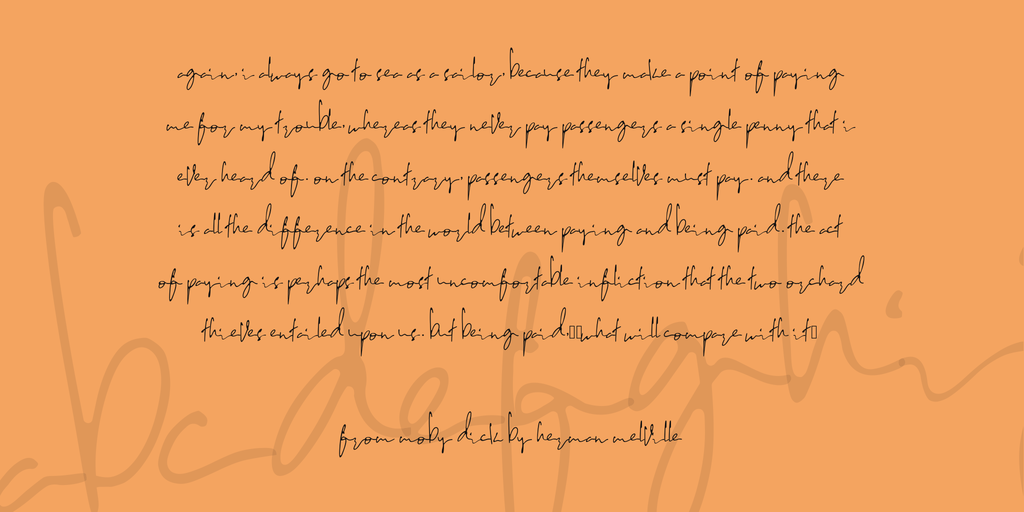 again, i always go to sea as a sailor, because they make a point of paying
me for my trouble, whereas they never pay passengers a single penny that i
ever heard of. on the contrary, passengers themselves must pay. and there
is all the difference in the world between paying and being paid. the act
of paying is perhaps the most uncomfortable infliction that the two orchard
thieves entailed upon us. but being paid,□□what will compare with it□
from moby dick by herman melville
abcdefghi